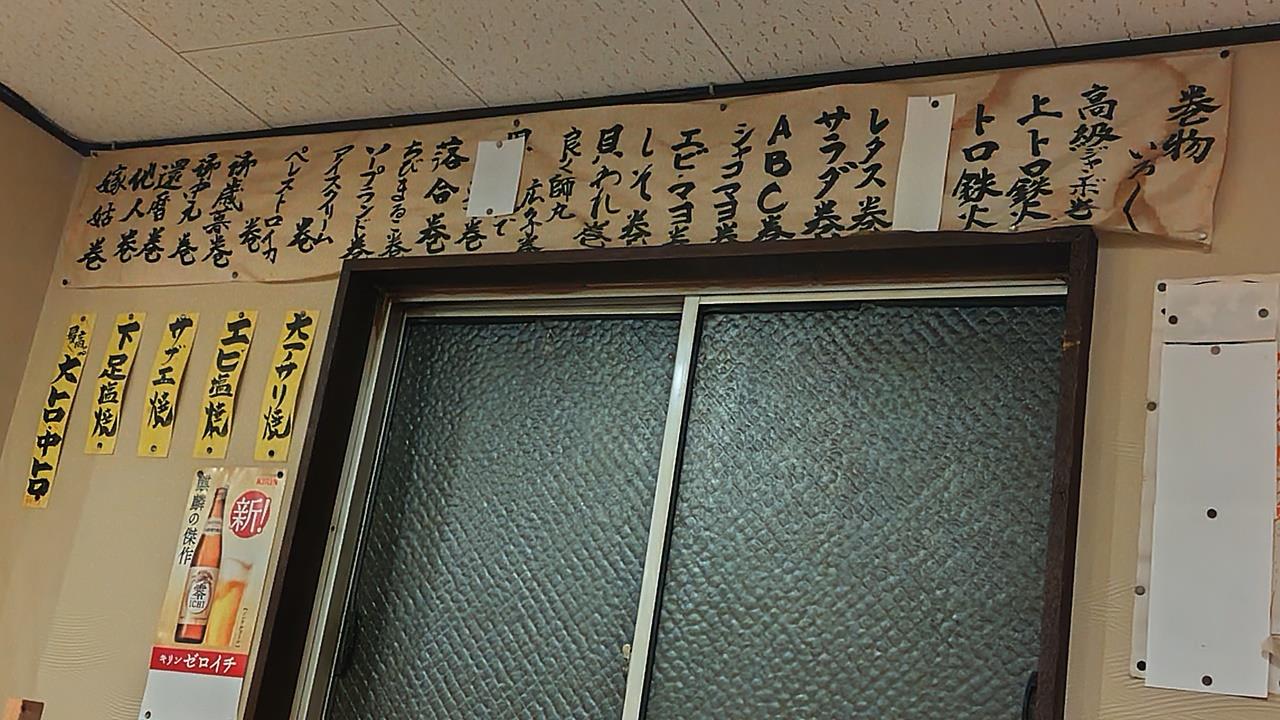 巻物
いろく
高級ジャンボ巻
上トロ鉄火
トロ鉄火
レタス巻
サラダ巻
ABC巻
シャコマヨ巻
エビマヨ巻
しそ巻
貝われ巻
良く師丸
広く巻
で巻
落合巻
ちびまるこ巻
ソープランド巻
アイスクリーム巻
ペレストロイカ巻
歳暮巻
中元巻
還暦巻
他人巻
嫁姑巻
大アサリ焼
エビ塩焼
サザエ焼
下足塩焼
最高 大トロ・中トロ
KIRIN
新!
麒麟の傑作
零ICHI
キリン ゼロイチ